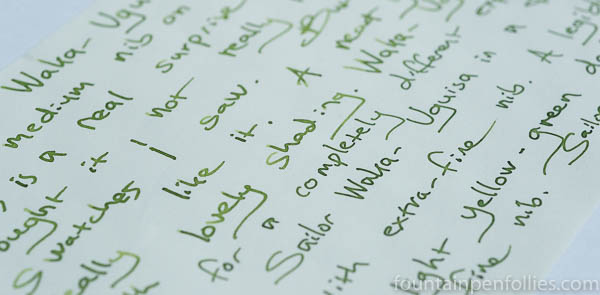 Waka- Ugu
medium nib on
is a real surprise
ought it I not really But
Swatches I saw. A react
ally like it.
lovely shading. Waka- Ugu
for a completely different
Sailor Waka- Uguisa in a
ith extra-fine nib. A legible
ght yellow-green da
fine nib. Sailo
fountainpenfollies.com